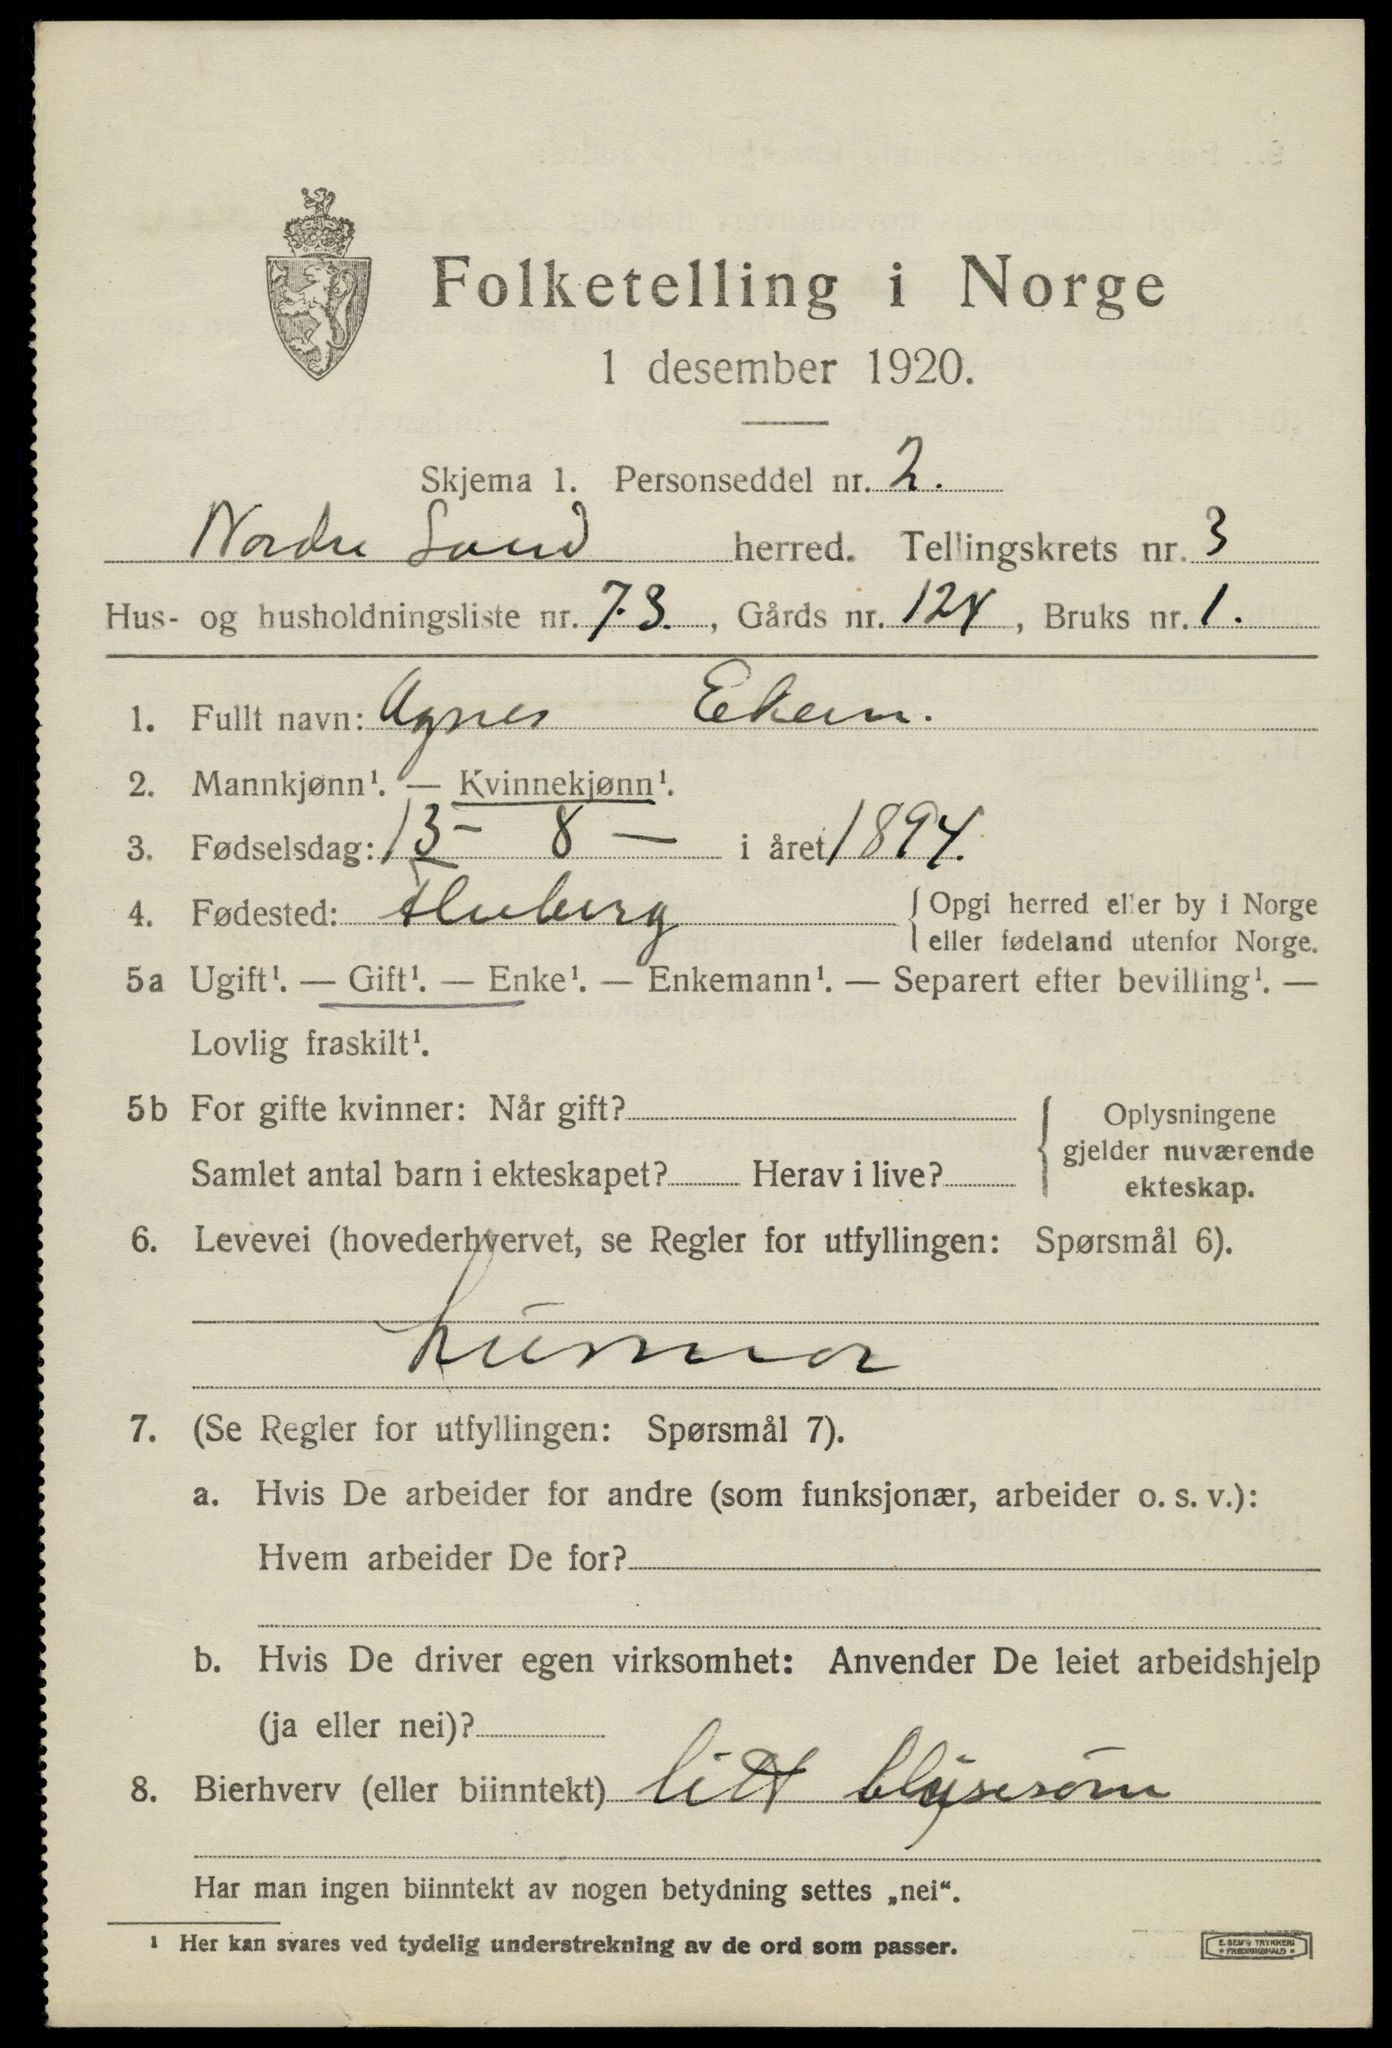 Folketelling i Norge
1 desember 1920.
Skjema 1. Personseddel nr. 2.
Nordre Land herred. Tellingskrets nr. 3
Hus- og husholdningsliste nr. 73., Gårds nr. 124, Bruks nr. 1.
1. Fullt navn: Agnes Ekern.
2. Mannkjønn¹. — Kvinnekjønn¹.
3. Fødselsdag: 13 - 8 — i året 1894.
4. Fødested: Fluberg { Opgi herred eller by i Norge
eller fødeland utenfor Norge.
5a Ugift¹. — Gift¹. — Enke¹. — Enkemann¹. — Separert efter bevilling¹. —
Lovlig fraskilt¹.
5b For gifte kvinner: Når gift?
Samlet antal barn i ekteskapet? Herav i live?
{ Oplysningene
gjelder nuværende
ekteskap.
6. Levevei (hovederhvervet, se Regler for utfyllingen: Spørsmål 6).
husmor
7. (Se Regler for utfyllingen: Spørsmål 7).
a. Hvis De arbeider for andre (som funksjonær, arbeider o. s. v.):
Hvem arbeider De for?
b. Hvis De driver egen virksomhet: Anvender De leiet arbeidshjelp
(ja eller nei)?
8. Bierhverv (eller biinntekt) litt blusesøm
Har man ingen biinntekt av nogen betydning settes „nei“.
¹ Her kan svares ved tydelig understrekning av de ord som passer.
E. SEM'S TRYKKERI
FREDRIKSHALD